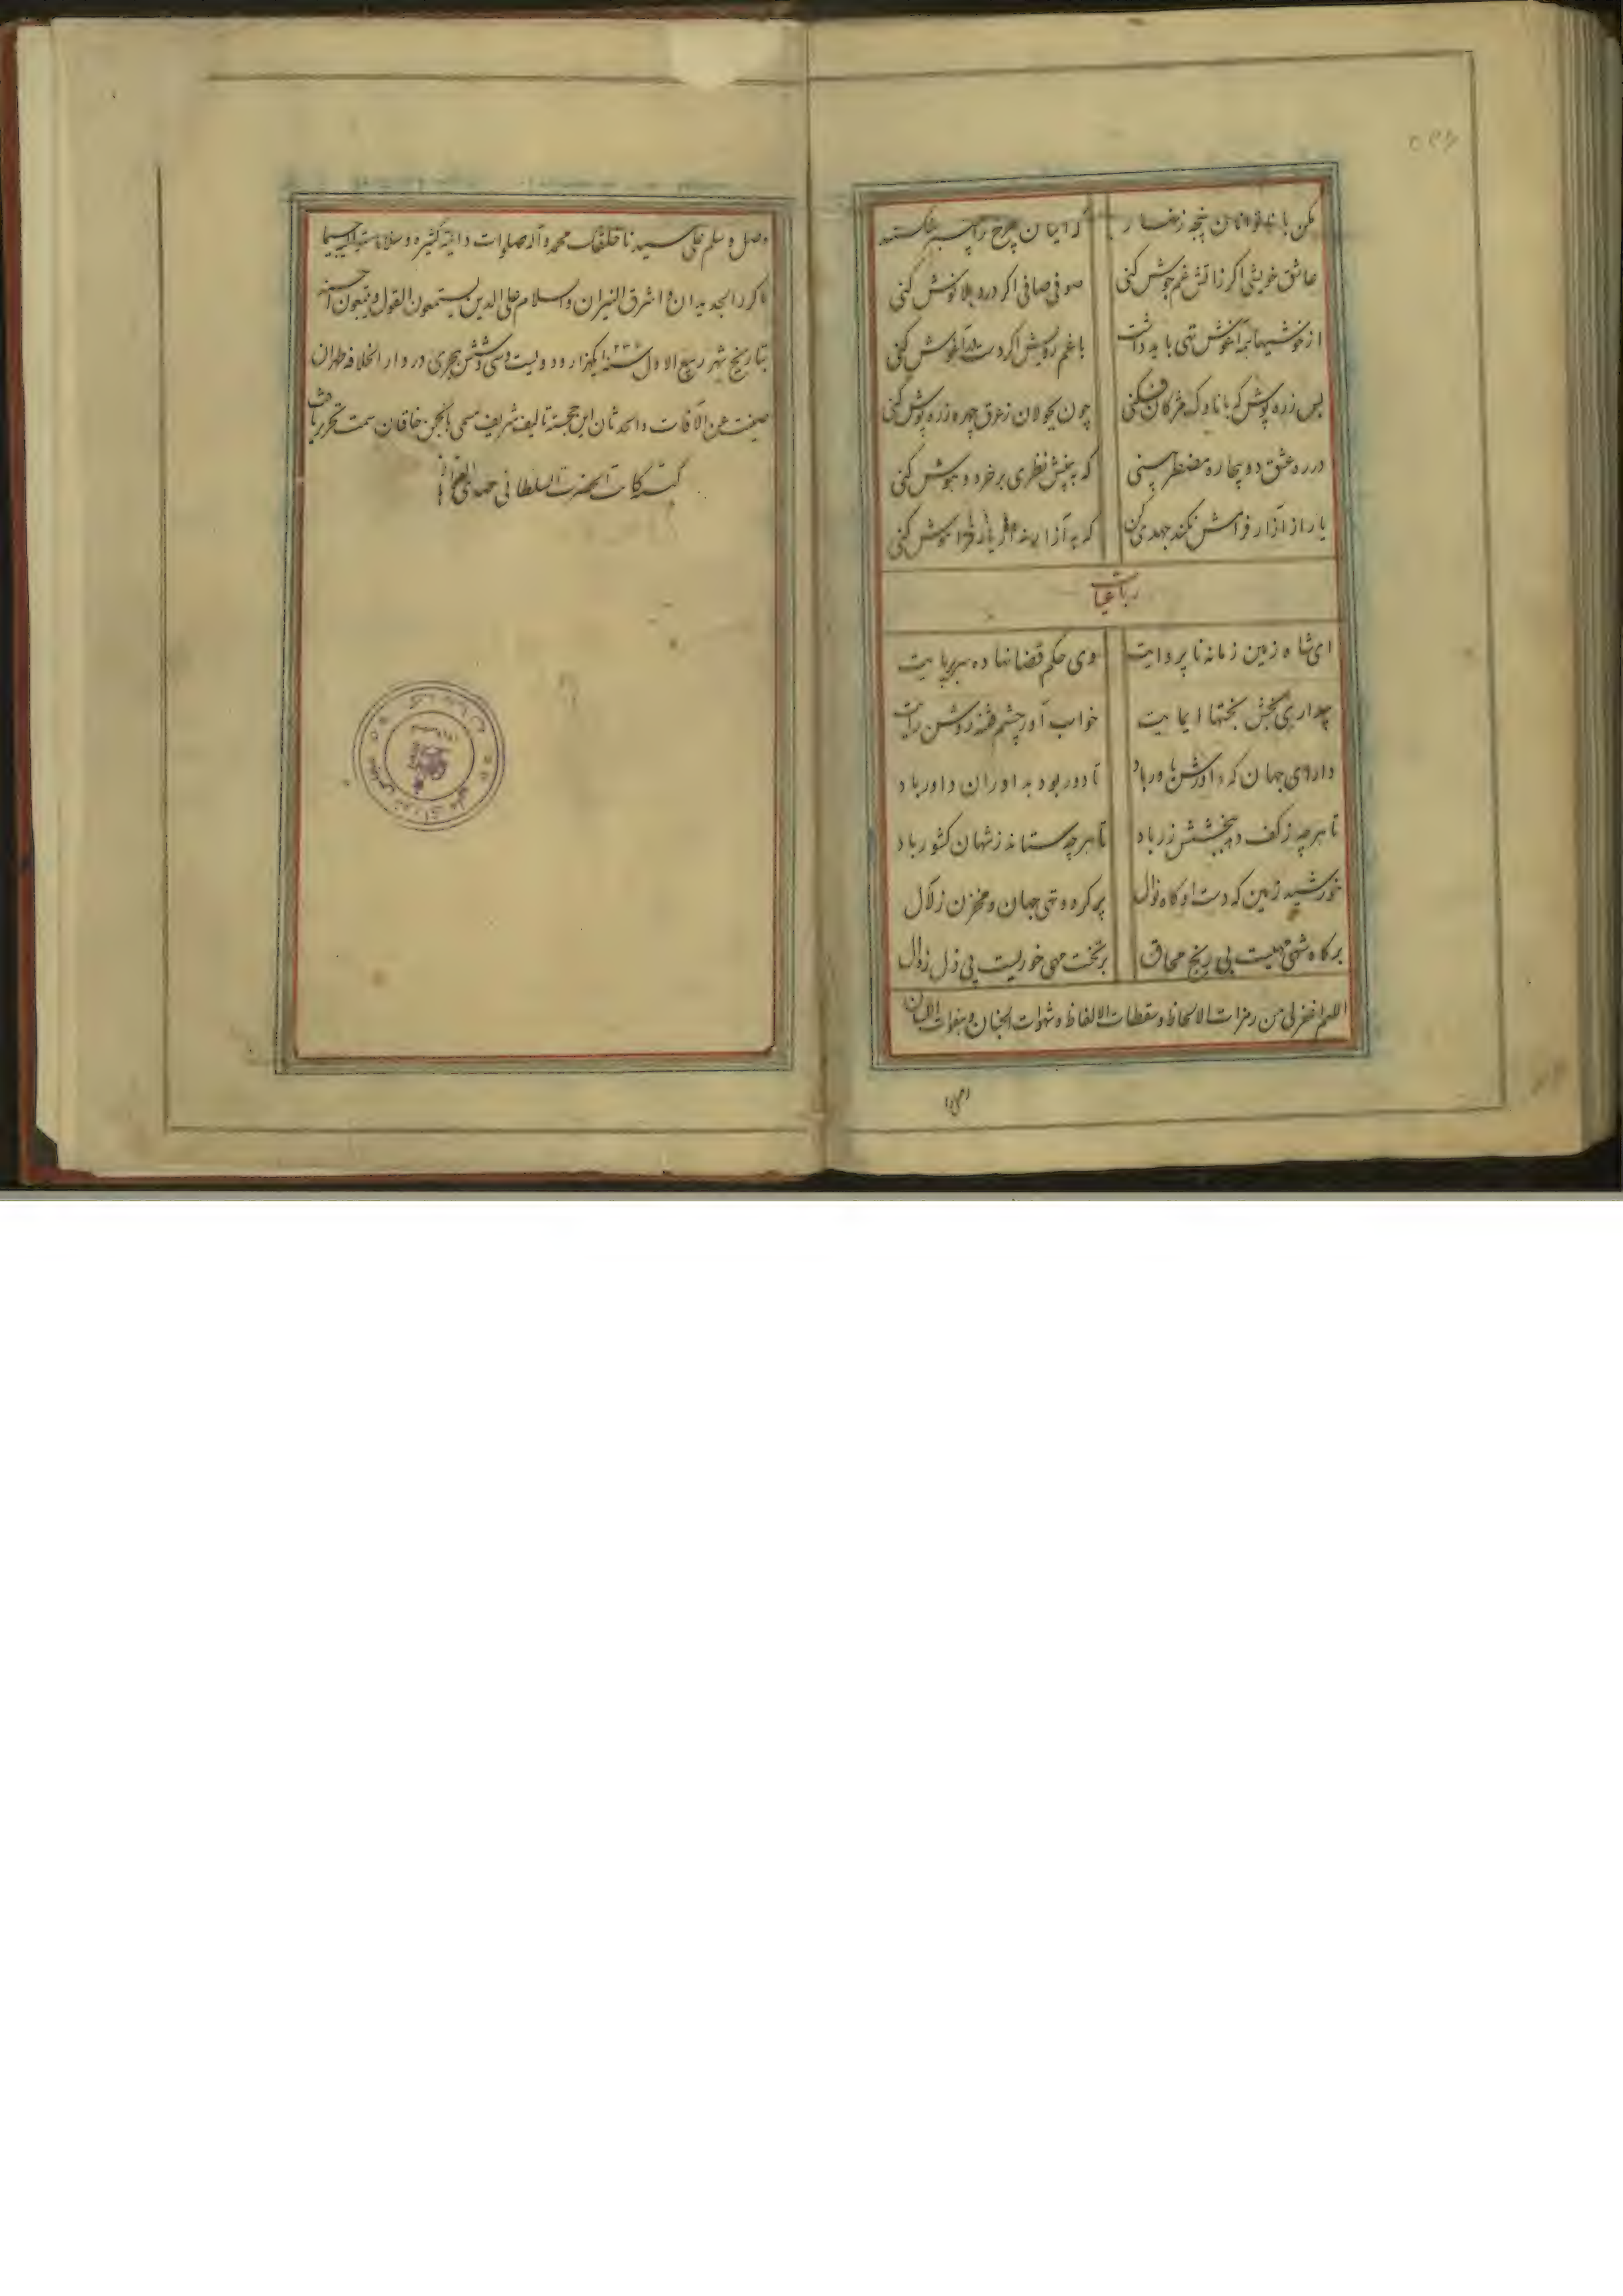 مکن با ناتوانان پنجه زنهار که اینان چرخ را چنبر شکستند
عاشق خویشی اگر زآتش غم جوش کنی صوفی صافی اگر درد بلا نوش کنی
از خوشیها همه آغوش تهی باید داشت با غم رویش اگر دست در آغوش کنی
بس زره پوش که با ناوک مژکان فکنی چون بجولان ز عرق چهره زره پوش کنی
در ره عشق دو بیچاره مضطر بینی که به پیش نظری بر خرد و هوش کنی
یار از آزار فرامش نکند جهدی کن که به آزار
رباعیات
ای شاه زمین زمانه ناپروایت وی حکم قضا نهاده سر بر پایت
بیداری بخش بختها ایمایت خواب آور چشم فتنه روشن رایت
دارای جهان که داورش یاور باد تا دور بود بداوران داور باد
تا هر چه ز کف دهی بخشش زر باد تا هر چه ستاند ز شهان کشور باد
خورشید زمین که دست او کاه نوال پر کرده و تهی جهان و مخزن ز لآل
بر کاه شهی مهیست بی رنج محاق بر تخت مهی خوریست بی ذل زوال
اللهم اغفر لی من رمزات الالحاظ و سقطات الالفاظ و شهوات الجنان و هفوات اللسان
وصل و سلم علی سیدنا محمد و آله صلوات دائمة کثیره و سلاما
ما کرر الجدیدان و اشرق النیران والسلام علی الذین یستمعون القول و یتبعون احسنه
بتاریخ شهر ربیع الاول سنه ۱۲۳۶ یکهزار و دویست و سی و شش هجری در دار الخلافه طهران
صینت عن الآفات والحدثان این خجسته تالیف شریف مسمی بانجمن خاقان سمت تحریر یافت